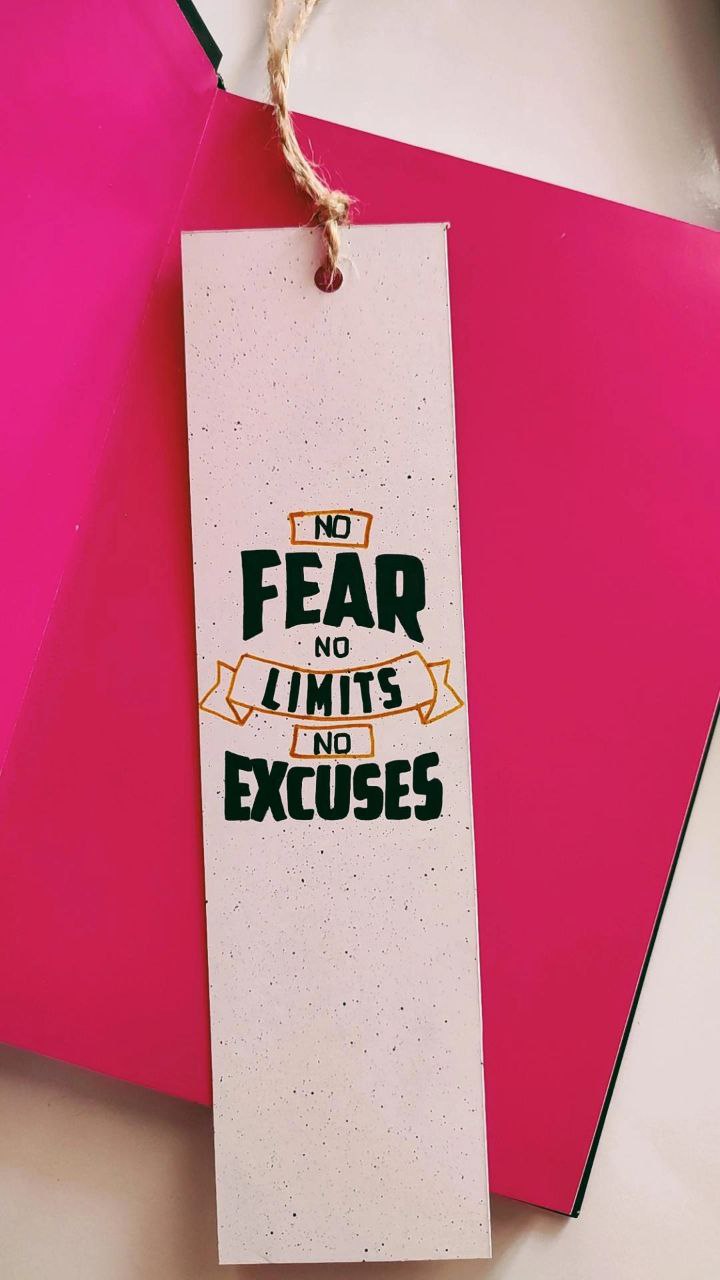 NO
FEAR
NO
LIMITS
NO
EXCUSES